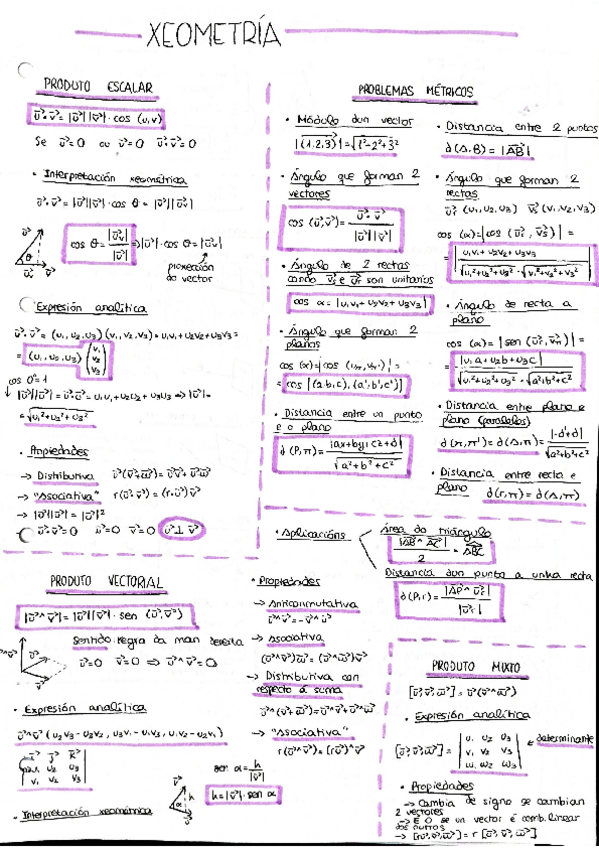 XEOMETRÍA
PRODUTO ESCALAR
u⃗·v⃗ = |u⃗||v⃗|·cos (u,v)
Se u⃗=0 ou v⃗=0 u⃗·v⃗=0
· Interpretación xeométrica
u⃗·v⃗ = |u⃗||v⃗|·cos θ = |u⃗||u⃗v|
cos θ = |u⃗v| / |u⃗| ⇒ |u⃗|·cos θ = |u⃗v|
proxección do vector
· Expresión analítica
u⃗·v⃗ = (u₁,u₂,u₃)(v₁,v₂,v₃) = u₁v₁+u₂v₂+u₃v₃ =
= (u₁,u₂,u₃) (v₁ v₂ v₃)
cos 0=1
↓ |u⃗||u⃗| = u⃗·u⃗ = u₁u₁+u₂u₂+u₃u₃ ⇒ |u⃗| =
= √u₁²+u₂²+u₃²
· Propiedades
→ Distributiva u⃗(v⃗+w⃗)=u⃗v⃗+u⃗w⃗
→ "Asociativa" r(u⃗·v⃗) = (r·u⃗)v⃗
→ |u⃗||u⃗| = |u⃗|²
→ u⃗·v⃗=0 u⃗=0 v⃗=0 u⃗⊥v⃗
PROBLEMAS MÉTRICOS
· Módulo dun vector
|(1,2,3)| = √1²+2²+3²
· Ángulo que forman 2
vectores
cos (u⃗,v⃗) = u⃗·v⃗ / |u⃗||v⃗|
· Ángulo de 2 rectas
cando v⃗s e u⃗r son unitarios
cos α = |u₁v₁+u₂v₂+u₃v₃|
· Ángulo que forman 2
planos
cos (α) = |cos (uπ,vπ')| =
= cos [(a,b,c),(a',b',c')]
· Distancia entre un punto
e o plano
d(P,π) = |ax+by+cz+d| / √a²+b²+c²
· Distancia entre 2 puntos
d(A,B) = |AB⃗|
· Ángulo que forman 2
rectas
u⃗r (u₁,u₂,u₃) v⃗s (v₁,v₂,v₃)
cos (α) = |cos (u⃗r, v⃗s)| =
= |u₁v₁+u₂v₂+u₃v₃ / √u₁²+u₂²+u₃² · √v₁²+v₂²+v₃²|
· Ángulo de recta a
plano
cos (α) = |sen (u⃗r, v⃗π)| =
= |u₁a+u₂b+u₃c| / √u₁²+u₂²+u₃² · √a²+b²+c²
· Distancia entre plano e
plano (paralelos)
d(π,π') = d(A,π) = |-d'+d| / √a²+b²+c²
· Distancia entre recta e
plano d(r,π) = d(A,π)
· Aplicacións
Área do triángulo
|AB⃗^AC⃗| / 2 = ABC
Distancia dun punto a unha recta
d(P,r) = |AP⃗^u⃗r| / |u⃗r|
PRODUTO VECTORIAL
|u⃗^v⃗| = |u⃗||v⃗|·sen (u⃗,v⃗)
Sentido: regra da man dereita
u⃗=0 v⃗=0 ⇒ u⃗^v⃗=0
· Expresión analítica
u⃗^v⃗ (u₂v₃-u₃v₂, u₃v₁-u₁v₃, u₁v₂-u₂v₁)
|i⃗ j⃗ k⃗|
|u₁ u₂ u₃|
|v₁ v₂ v₃|
· Interpretación xeométrica
sen α = h / |v⃗|
h = |v⃗|·sen α
· Propiedades
→ Anticonmutativa
u⃗^v⃗ = -v⃗^u⃗
→ Asociativa
(u⃗^v⃗)w⃗ = (u⃗^w⃗)v⃗
→ Distributiva con
respecto á suma
u⃗^(v⃗+w⃗) = u⃗^v⃗+u⃗^w⃗
→ "Asociativa"
r(u⃗^v⃗) = (ru⃗)^v⃗
PRODUTO MIXTO
[u⃗,v⃗,w⃗] = u⃗(v⃗^w⃗)
· Expresión analítica
[u⃗,v⃗,w⃗] = |u₁ u₂ u₃| determinante
|v₁ v₂ v₃|
|w₁ w₂ w₃|
· Propiedades
→ Cambia de signo se cambian
2 vectores
→ É 0 se un vector é comb. linear
dos outros
→ [ru⃗,v⃗,w⃗] = r[u⃗,v⃗,w⃗]